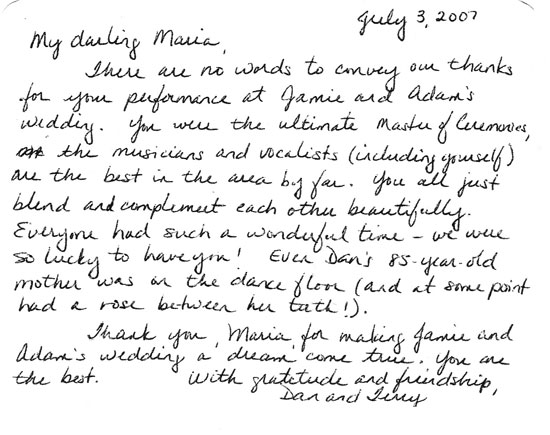 July 3, 2007
My darling Maria,
There are no words to convey our thanks
for your performance at Jamie and Adam's
wedding. You were the ultimate Master of Ceremonies,
the musicians and vocalists (including yourself)
are the best in the area by far. You all just
blend and complement each other beautifully.
Everyone had such a wonderful time – we were
so lucky to have you! Even Dan's 85-year-old
mother was on the dance floor (and at some point
had a rose between her teeth!).
Thank you, Maria, for making Jamie and
Adam's wedding a dream come true. You are
the best. With gratitude and friendship,
Dan and Terry